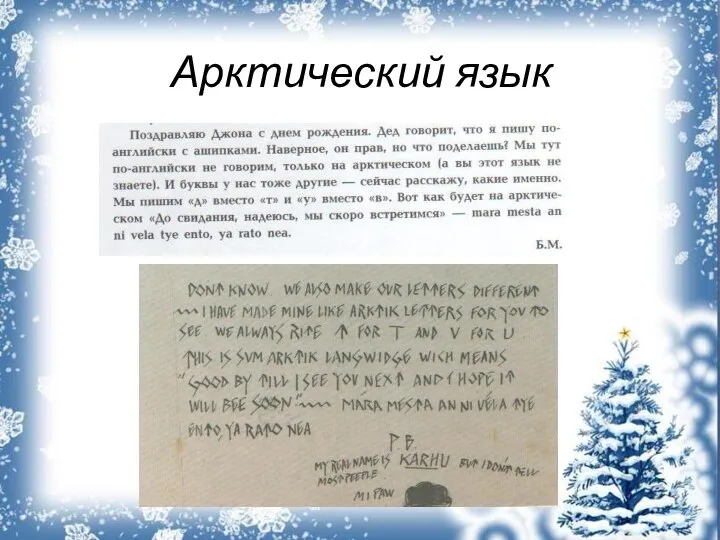 Арктический язык
Поздравляю Джона с днем рождения. Дед говорит, что я пишу по-
английски с ашипками. Наверное, он прав, но что поделаешь? Мы тут
по-английски не говорим, только на арктическом (а вы этот язык не
знаете). И буквы у нас тоже другие — сейчас расскажу, какие именно.
Мы пишим «д» вместо «т» и «у» вместо «в». Вот как будет на арктиче-
ском «До свидания, надеюсь, мы скоро встретимся» — mara mesta an
ni vela tye ento, ya rato nea.
Б.М.
DONT KNOW. WE ALSO MAKE OUR LETTERS DIFFERENT
~~ I HAVE MADE MINE LIKE ARKTIK LETTERS FOR YOU TO
SEE. WE ALWAYS RITE ↑ FOR T AND V FOR U.
THIS IS SVM ARKTIK LANGWIDGE WICH MEANS
"GOOD BY TILL I SEE YOU NEXT AND I HOPE IT
WILL BEE SOON." ~~ MARA MESTA AN NI VÉLA TYE
ENTO, YA RATO NEA
P.B.
MY REAL NAME IS KARHU BUT I DON'T TELL
MOST PEEPLE.
MI PAW